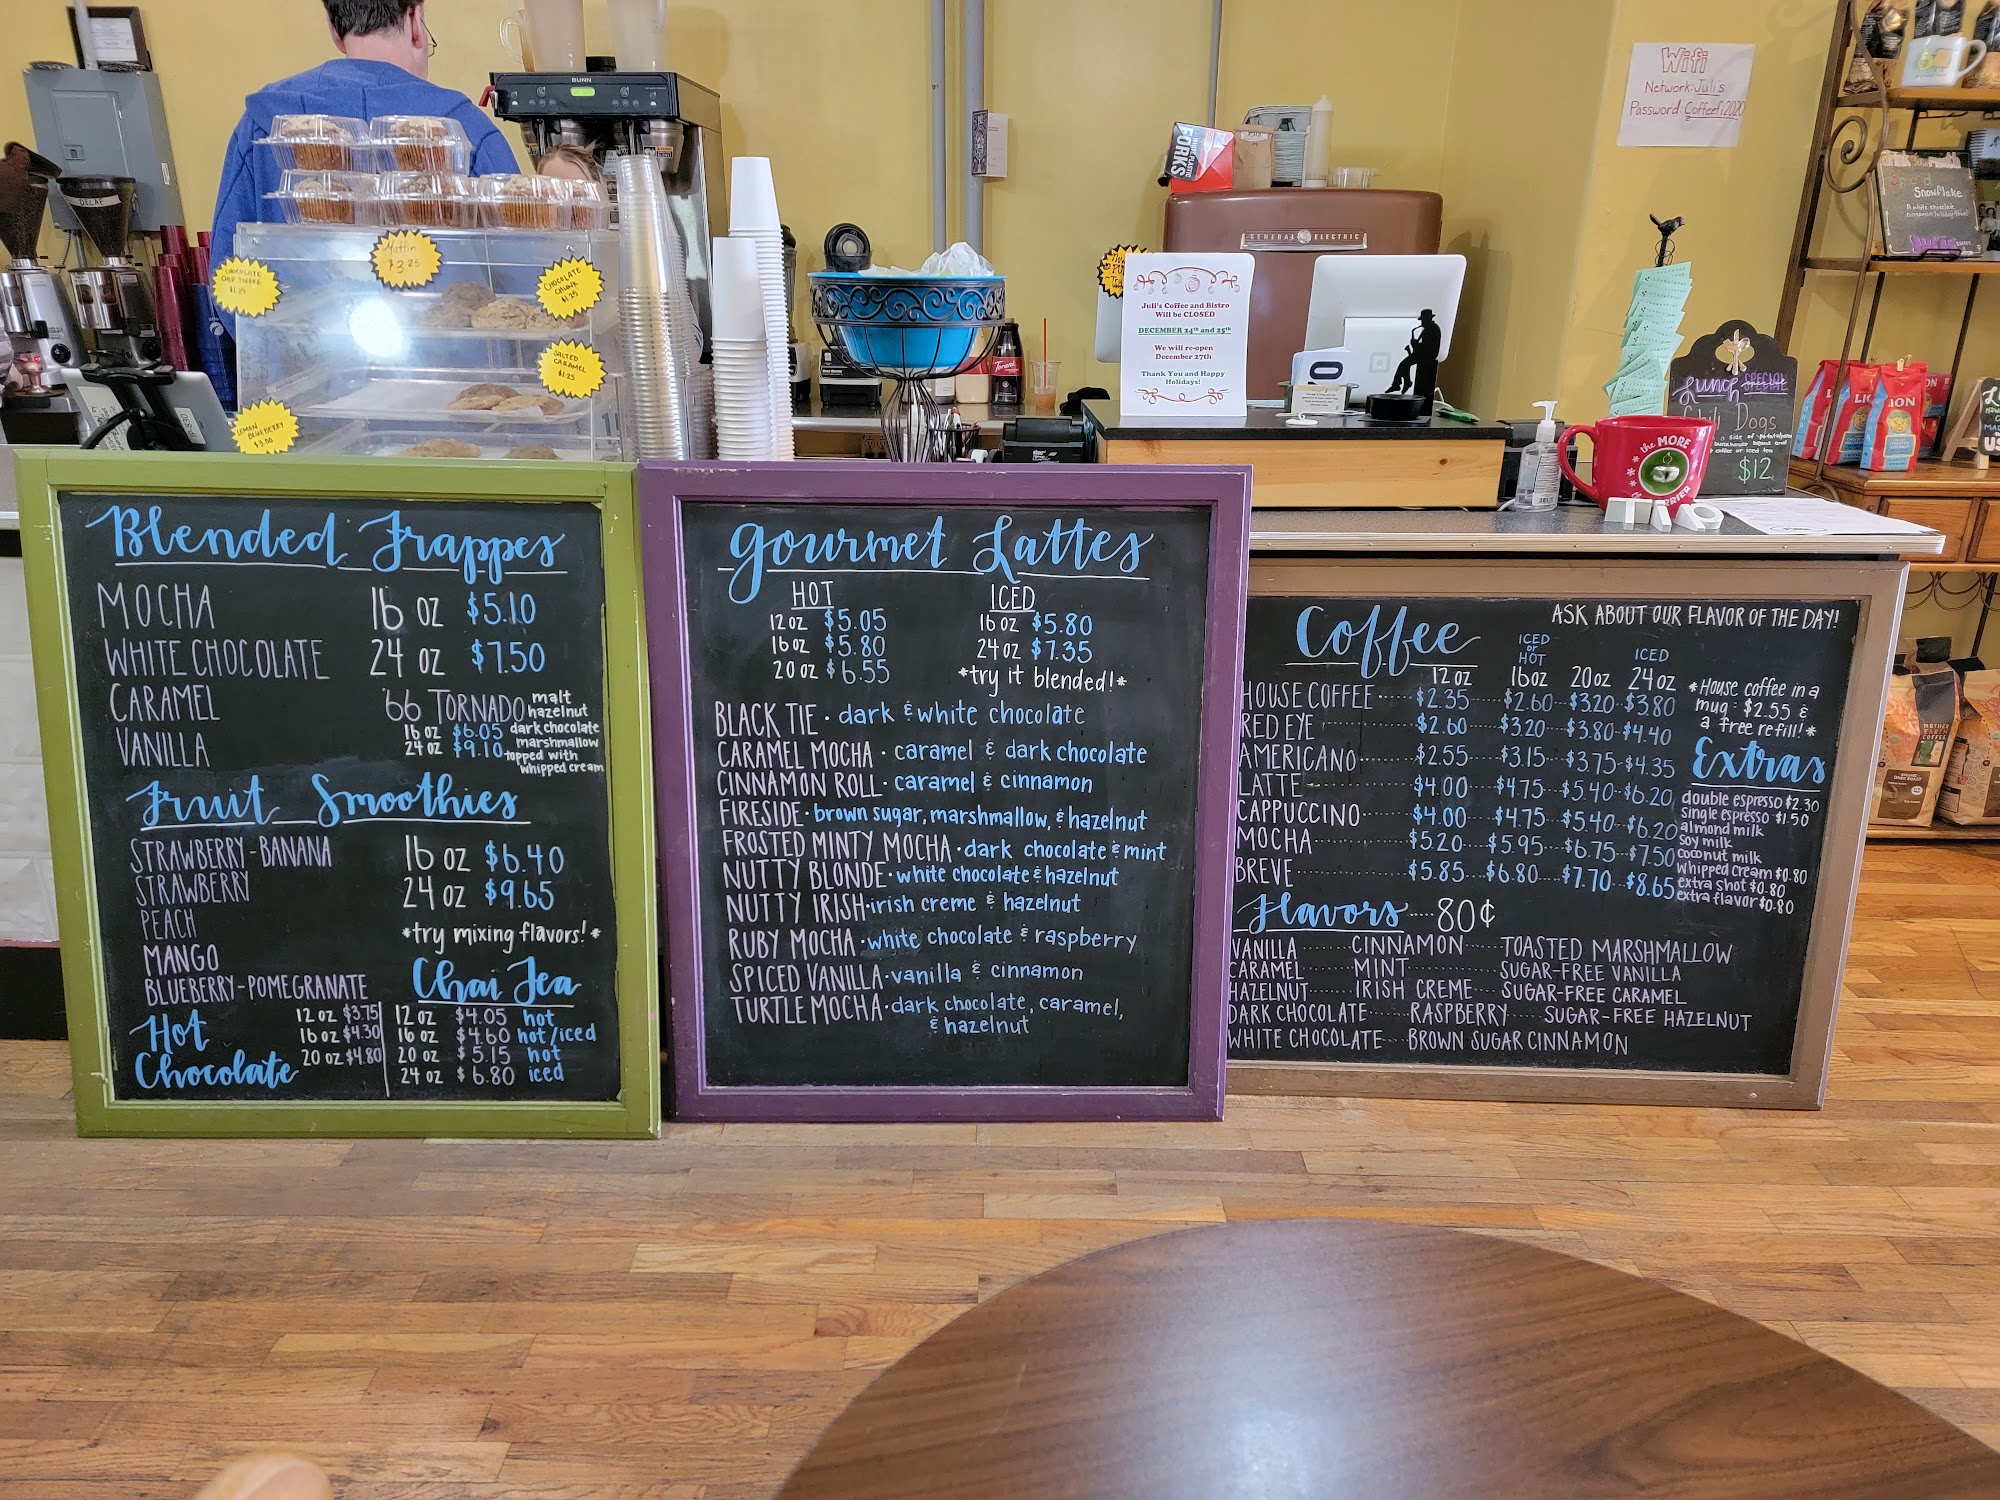 BUNN
DECAF
Muffin
$3.25
CHOCOLATE
CHIP TOFFEE
$1.25
CHOCOLATE
CHUNK
$1.25
SALTED
CARAMEL
$1.25
LEMON
BLUEBERRY
$3.00
FORKS
GENERAL ELECTRIC
Torani
Juli's Coffee and Bistro
Will be CLOSED
DECEMBER 24th and 25th
We will re-open
December 27th
Thank You and Happy
Holidays!
Wifi
Network: Juli's
Password: Coffeefi2020
Snowflake
Lunch SPECIAL
Chili Dogs
coffee or iced tea
$12
the MORE
LION
TIP
Blended Frappes
MOCHA 16 oz $5.10
WHITE CHOCOLATE 24 oz $7.50
CARAMEL
VANILLA
'66 TORNADO malt
hazelnut
16 oz $6.05 dark chocolate
24 oz $9.10 marshmallow
topped with
whipped cream
Fruit Smoothies
STRAWBERRY-BANANA 16 oz $6.40
STRAWBERRY 24 oz $9.65
PEACH
*try mixing flavors!*
MANGO
BLUEBERRY-POMEGRANATE
Hot Chocolate
12 oz $3.75
16 oz $4.30
20 oz $4.80
Chai Tea
12 oz $4.05 hot
16 oz $4.60 hot/iced
20 oz $5.15 hot
24 oz $6.80 iced
Gourmet Lattes
HOT
12 oz $5.05
16 oz $5.80
20 oz $6.55
ICED
16 oz $5.80
24 oz $7.35
*try it blended!*
BLACK TIE · dark & white chocolate
CARAMEL MOCHA · caramel & dark chocolate
CINNAMON ROLL · caramel & cinnamon
FIRESIDE · brown sugar, marshmallow, & hazelnut
FROSTED MINTY MOCHA · dark chocolate & mint
NUTTY BLONDE · white chocolate & hazelnut
NUTTY IRISH · irish creme & hazelnut
RUBY MOCHA · white chocolate & raspberry
SPICED VANILLA · vanilla & cinnamon
TURTLE MOCHA · dark chocolate, caramel,
& hazelnut
Coffee
ASK ABOUT OUR FLAVOR OF THE DAY!
ICED or HOT ICED
12 oz 16 oz 20 oz 24 oz
HOUSE COFFEE $2.35 $2.60 $3.20 $3.80
RED EYE $2.60 $3.20 $3.80 $4.40
AMERICANO $2.55 $3.15 $3.75 $4.35
LATTE $4.00 $4.75 $5.40 $6.20
CAPPUCCINO $4.00 $4.75 $5.40 $6.20
MOCHA $5.20 $5.95 $6.75 $7.50
BREVE $5.85 $6.80 $7.70 $8.65
*House coffee in a
mug = $2.55 &
a free refill!*
Extras
double espresso $2.30
single espresso $1.50
almond milk
soy milk
coconut milk
whipped cream $0.80
extra shot $0.80
extra flavor $0.80
Flavors 80¢
VANILLA CINNAMON TOASTED MARSHMALLOW
CARAMEL MINT SUGAR-FREE VANILLA
HAZELNUT IRISH CREME SUGAR-FREE CARAMEL
DARK CHOCOLATE RASPBERRY SUGAR-FREE HAZELNUT
WHITE CHOCOLATE BROWN SUGAR CINNAMON